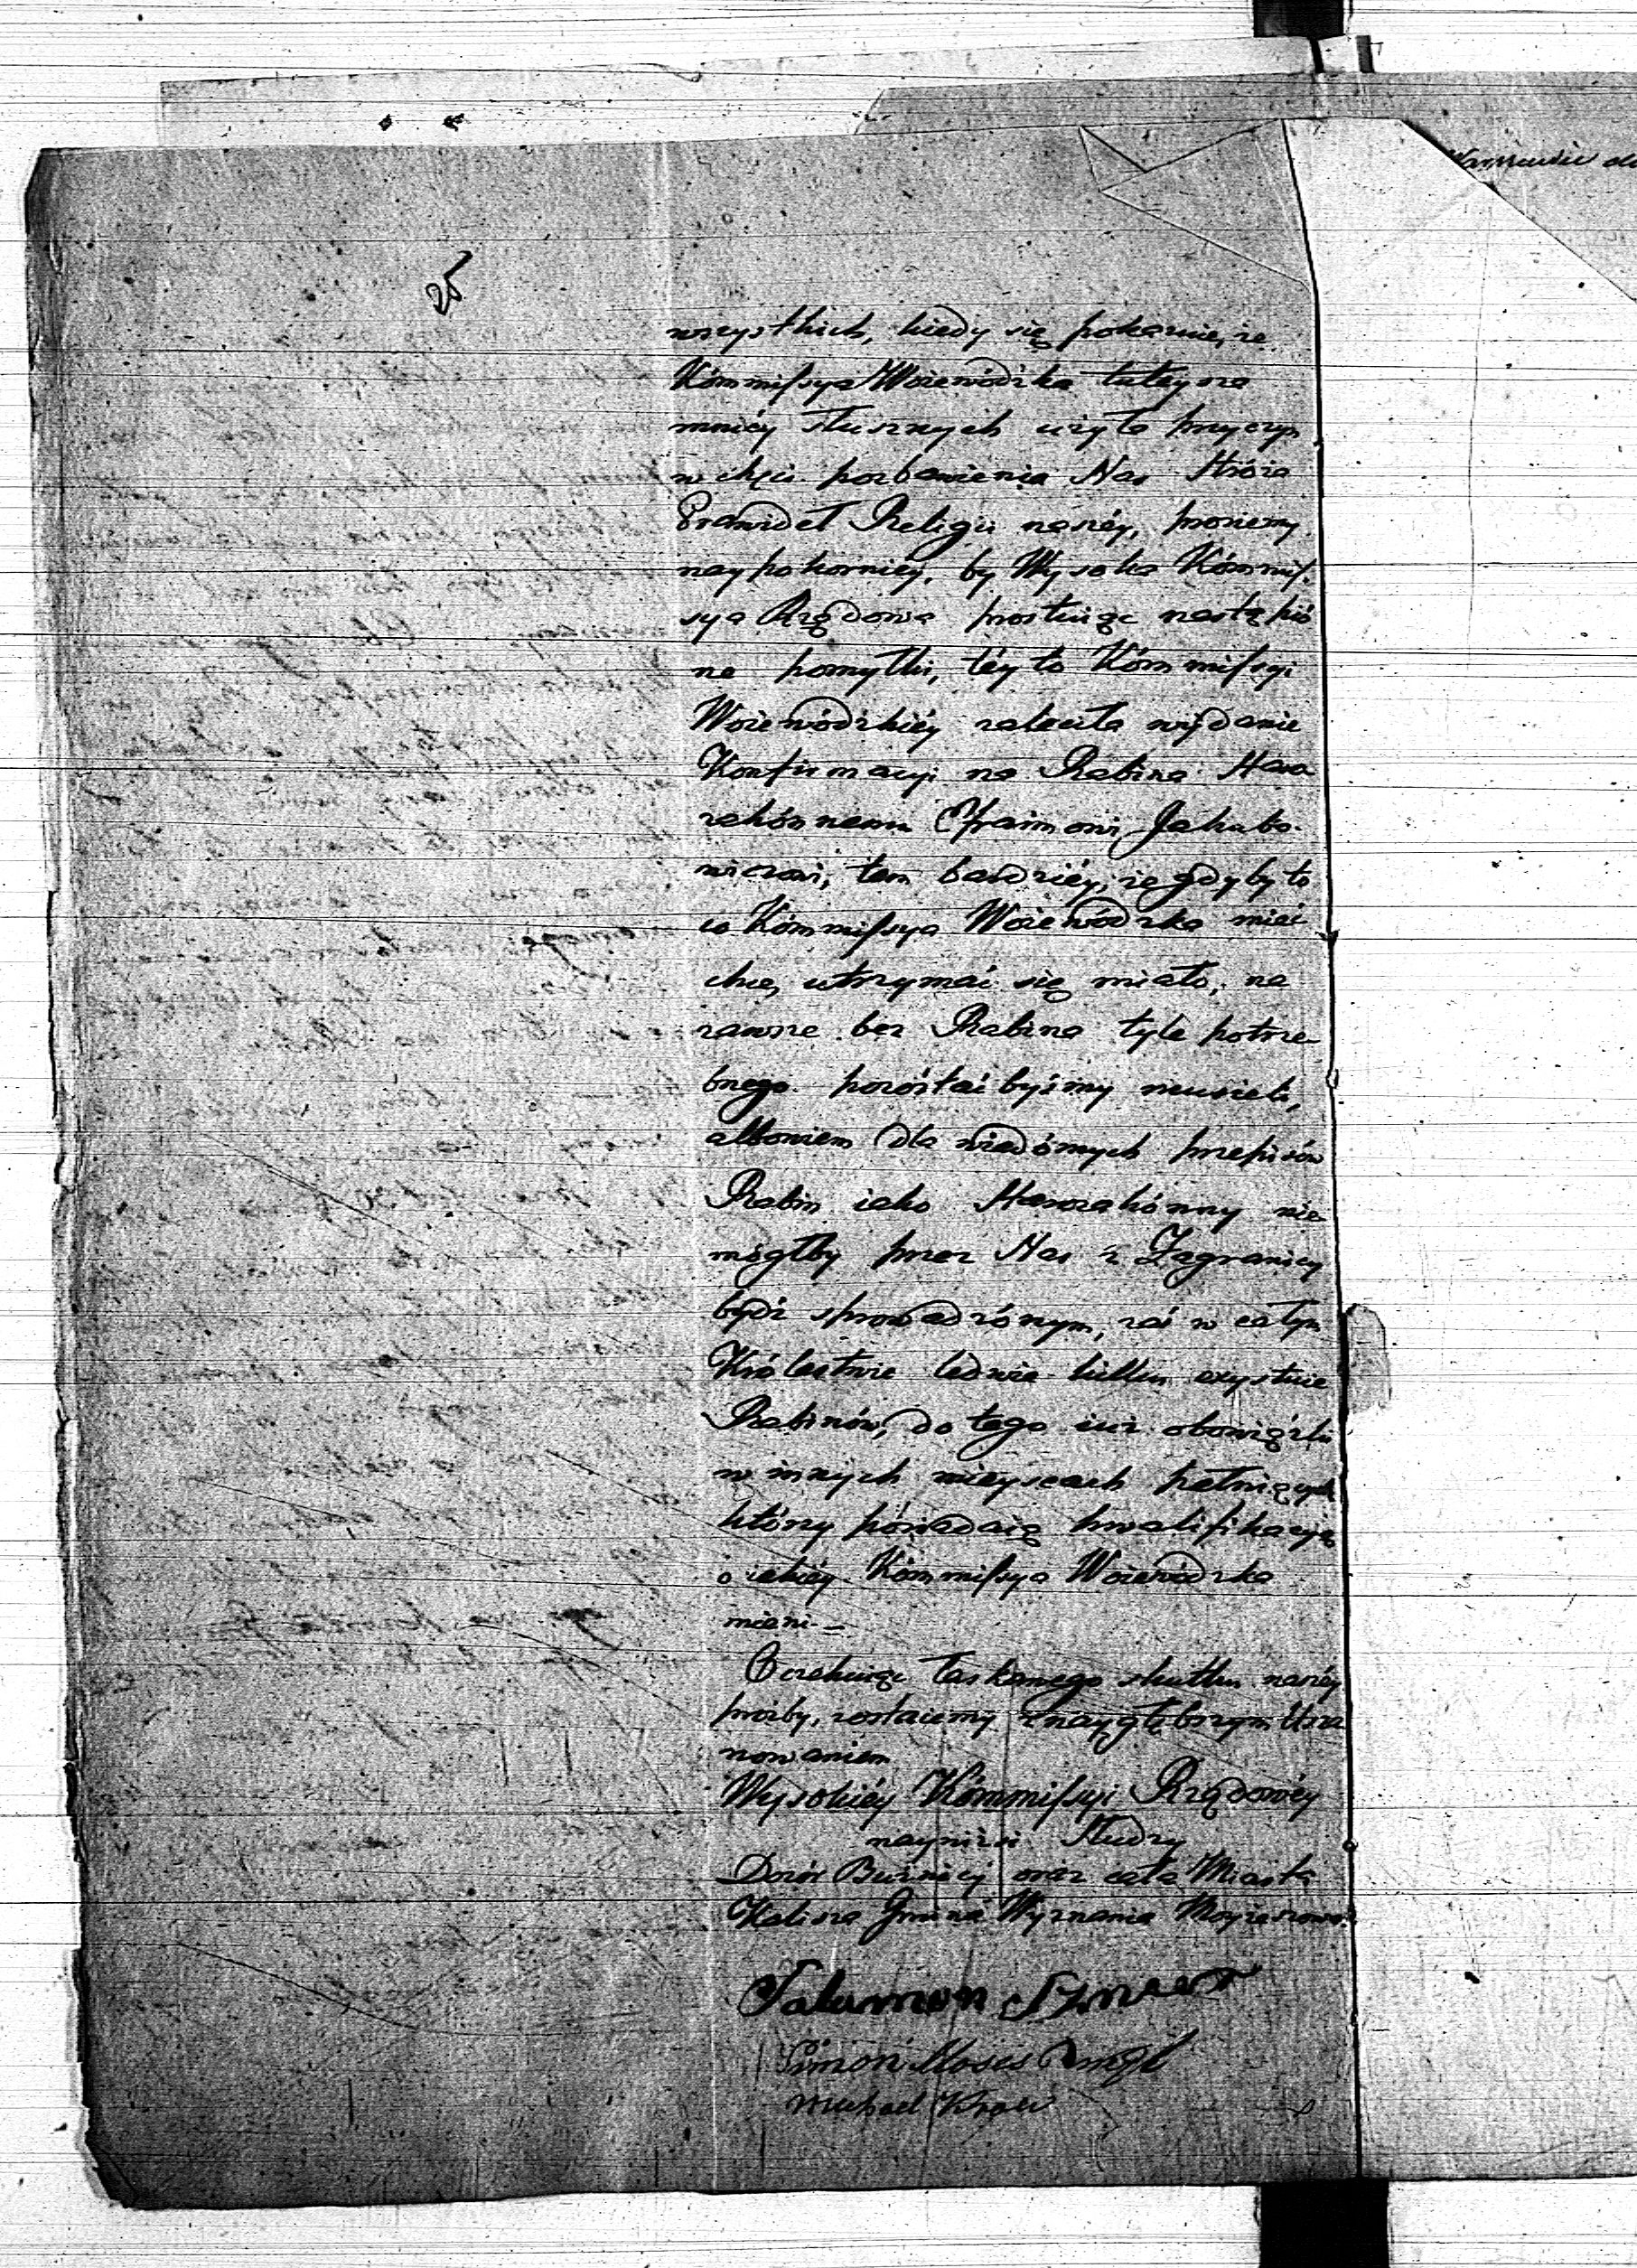 wszystkich, kiedy się pokazuie, że
Kómmifsya Woiewódzka tuteysza
mniéy słusznych użyła przyczyn
w chęci pozbawienia Nas Stróża
Prawideł Religii naszéy, prosiemy
naypokorniey, by Wysoka Kómmif-
sya Rządowa prostuiąc nastąpio
ne pomyłki, téy to Kómmifsyi
Woiewódzkiéy zaleciła wydanie
Konfirmacyi na Rabina Staro
zakónnemu Efraimowi Jakubo-
wiczowi, tem bardziéy, że gdyby to
co Kómmifsya Woiewódzka mieć
chce, utrzymać się miało, na
zawsze bez Rabina tyle potrze-
bnego pozóstać byśmy musieli,
albowiem dla wiadómych przepisów
Rabin iako Starozakónny nie
mógłby przez Nas z Zagranicy
bydź sprowadzónym, zaś w całym
Królestwie ledwie kilku exystuie
Rabinów, do tego iuż obowiązki
w innych mieyscach pełniących
którzy posiadaią kwalifikacyią
o iakiéy Kómmifsya Woiewódzka
mieni –
Oczekuiąc łaskawego skutku naszéy
prośby, zostaiemy z naygłębszym Usza
nowaniem
Wysokiéy Kómmifsyi Rządowéy
nayniżsi Słudzy
Dozór Bużnicy oraz cała Miasta
Kalisza Gmina Wyznania Moyżeszowe
Salamon
Simon Moses
Michael